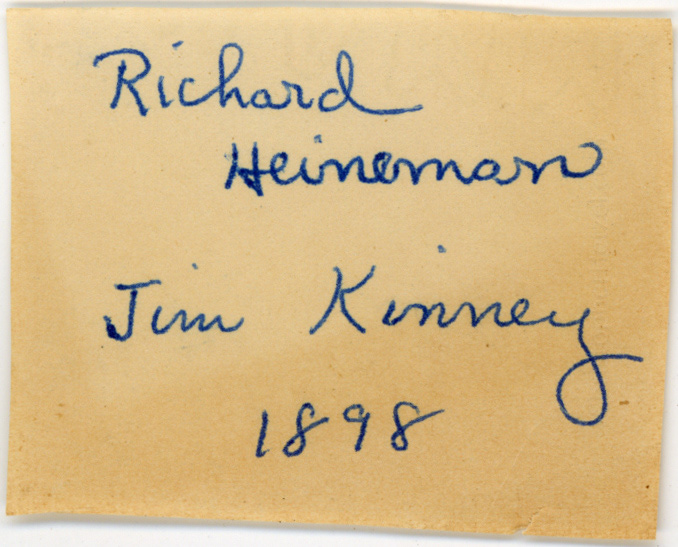 Richard
Heineman
Jim Kinney
1898